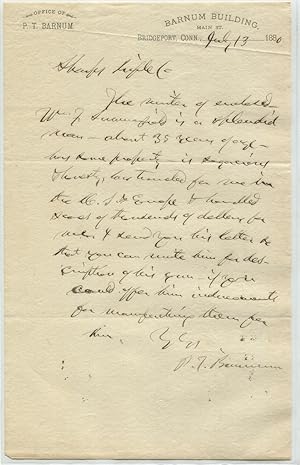 OFFICE OF
P. T. BARNUM
BARNUM BUILDING,
MAIN ST.
BRIDGEPORT, CONN., July 13 1880
Sharps Rifle Co
The writer of enclosed
Wm J is a splendid
man - about 35 years of age -
has some property - is sagacious
& honest, has traveled for me in
the U. S. & Europe & handled
of thousands of dollars for
me. I send you his letter so
that you can write him for des-
cription of his gun - if you
could offer him inducements
for manufacturing them for
him.
P. T. Barnum